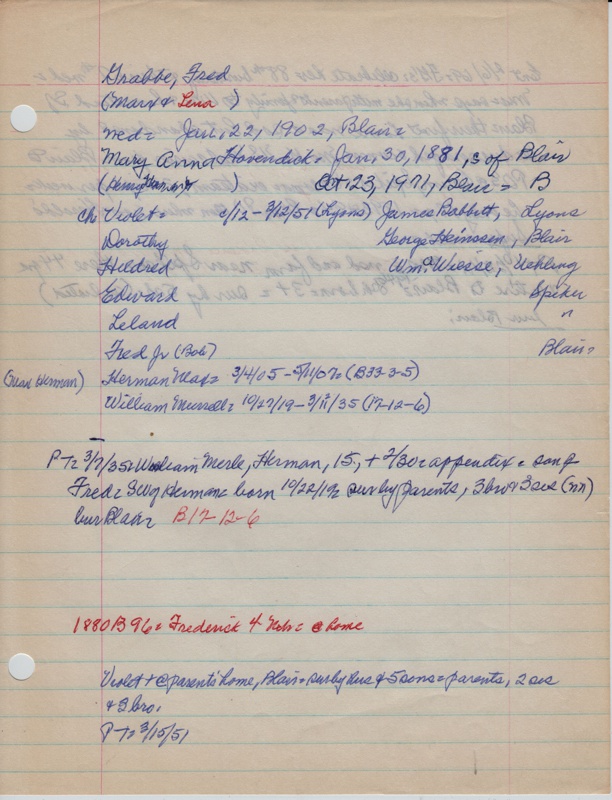 Grabbe, Fred
(Marx & Lena)
Jan. 22, 1902, Blair=
Mary Anna Havendick= Jan. 30, 1881, 3 of Blair
( ) Oct 23, 1971, Blair= B
ch Violet= c/12 - 3/12/51 (Lyons) James Babbitt, Lyons
Dorothy George Heinssen, Blair
Hildred Wm. Wiesse, Uehling
Edward Spiker
Leland "
Fred Jr (Bob) Blair=
(Max Herman) Herman Max= 3/4/05 - (B33-3-5)
William Murrell= 10/27/19 - 3/11/35 (17-12-6)
PT= 3/7/35= William Merle, Herman, 15, + 2/30= appendix= son of
Fred= 3W of Herman= born 10/22/19= sur by parents, 3 bro & 3 sis (nn)
bur Blair= B17-12-6
1880 B 96= Frederick 4 Neb= @ home
Violet + @ parents' home, Blair= sur by hus & 5 sons= parents, 2 sis
& 3 bro.
PT= 3/15/51